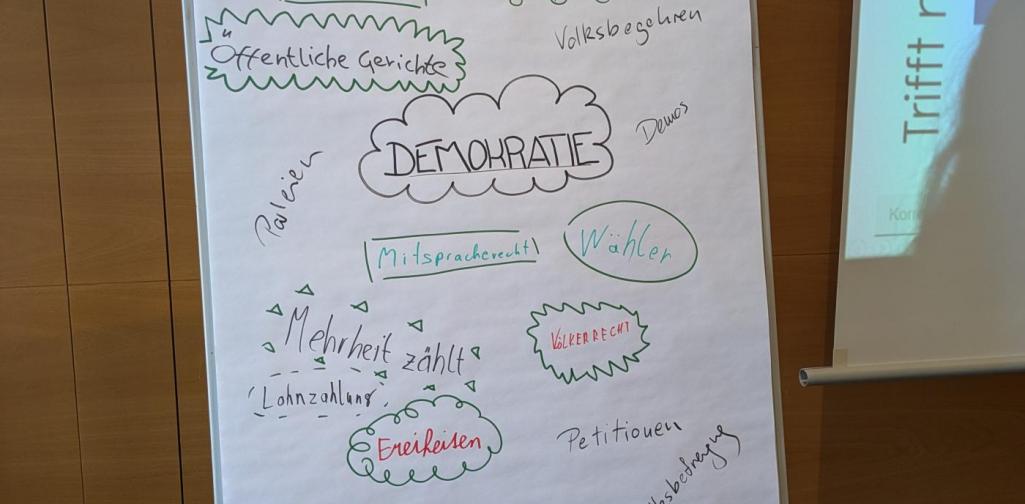 Öffentliche Gerichte
Volksbegehren
Trifft
DEMOKRATIE
Demos
Parteien
Mitspracherecht
Wähler
Mehrheit zählt
VÖLKERRECHT
Lohnzahlung
Freiheiten
Petitionen